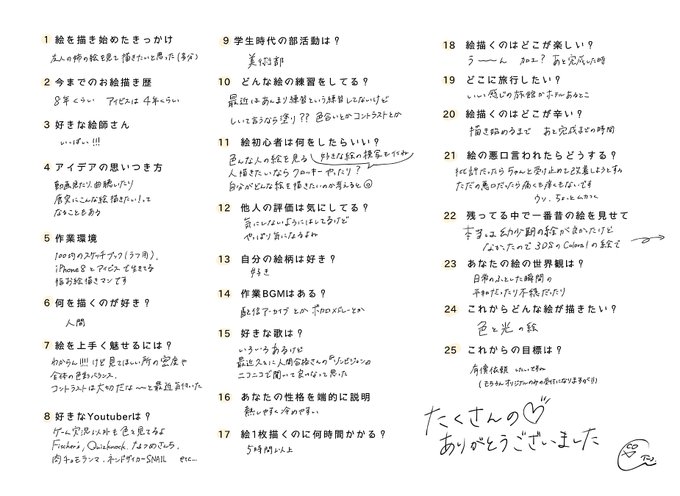 1 絵を描き始めたきっかけ
友人の姉の絵を見て描きたいと思った(多分)
2 今までのお絵描き歴
8年くらい アイビスは4年くらい
3 好きな絵師さん
いっぱい!!!
4 アイデアの思いつき方
動画見たり、曲聴いたり
唐突にこんな絵描きたい!って
なることもある
5 作業環境
100均のスケッチブック(ラフ用)、
iPhone8とアイビスで生きてる
指お絵描きマンです
6 何を描くのが好き?
人間
7 絵を上手く魅せるには?
わからん!!!! けど見てほしい所の密度や
全体の色彩バランス、
コントラストは大切だな〜と最近気付いた
8 好きなYoutuberは?
ゲーム実況以外も色々見てるよ
Fischer's, Quizknock, なつめさんち、
肉チョモランマ、ホンドザイカーSNAIL etc...
9 学生時代の部活動は?
美術部
10 どんな絵の練習をしてる?
最近はあんまり練習という練習してないけど
しいて言うなら塗り?? 色合いとかコントラストとか
11 絵初心者は何をしたらいい?
色んな人の絵を見る 好きな絵の模写をしてみ
人描きたいなら クロッキーやったり?
自分がどんな絵を描きたいのか考えると◎
12 他人の評価は気にしてる?
気にしないようにはしてるけど
やっぱり気になるよね
13 自分の絵柄は好き?
好き
14 作業BGMはある?
配信アーカイブとか ボカロメドレーとか
15 好きな歌は?
いろいろあるけど
最近久々に人間合格さんの
ニコニコで聞いて良いなって思った
16 あなたの性格を端的に説明
熱しやすく冷めやすい
17 絵1枚描くのに何時間かかる?
5時間以上
18 絵描くのはどこが楽しい?
う〜〜ん 加工? あと完成した時
19 どこに旅行したい?
いい感じの旅館かホテルあるとこ
20 絵描くのはどこが辛い?
描き始めるまで あと完成までの時間
21 絵の悪口言われたらどうする?
批評だったらちゃんと受け止めて改善しようとするの
ただの悪口だったら痛くも痒くもないです
ウソ、ちょっとムカつく
22 残ってる中で一番昔の絵を見せて
本当は幼少期の絵が良かったけど
なかったので3DSのColors!の絵で
23 あなたの絵の世界観は?
日常のふとした瞬間の
平和だったり不穏だったり
24 これからどんな絵が描きたい?
色と光の絵
25 これからの目標は?
有償依頼 したいですね
(もちろんオリジナルのみの受付になりますが!)
たくさんの♡
ありがとうございました